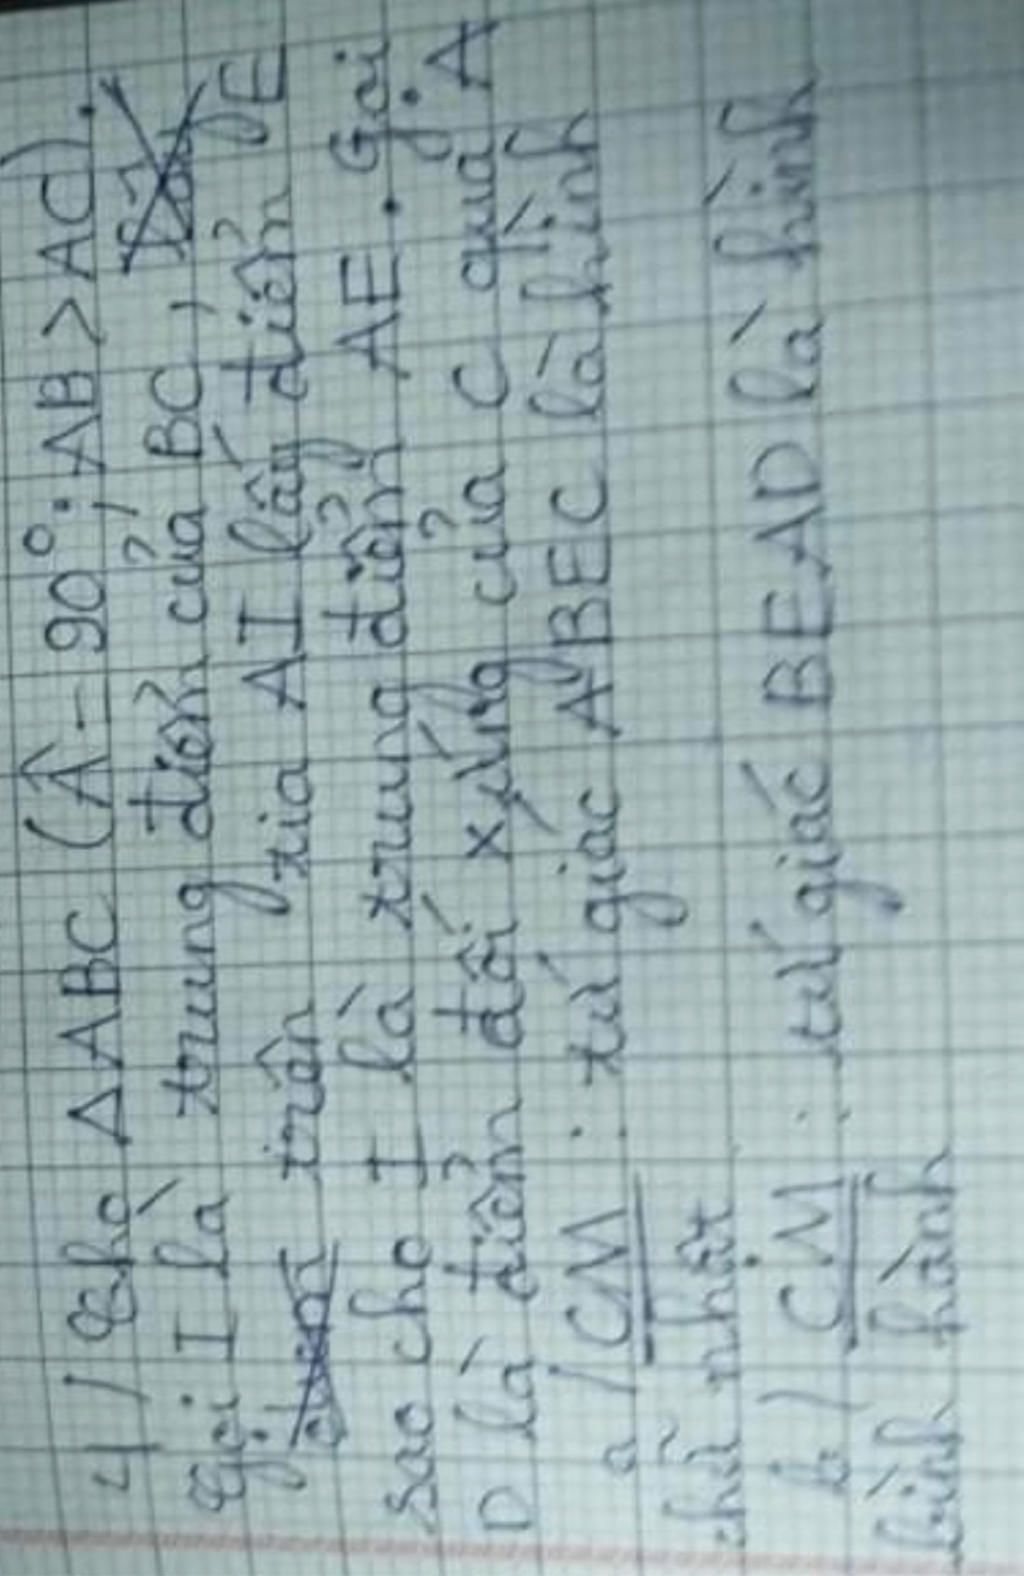 4/ Cho ΔABC (Â = 90°; AB > AC).
Gọi I là trung điểm của BC,
trên tia AI lấy điểm E
sao cho I là trung điểm AE. Gọi
D là điểm đối xứng của C qua A
a/ CM: tứ giác ABEC là hình
chữ nhật
b/ CM: tứ giác BEAD là hình
bình hành